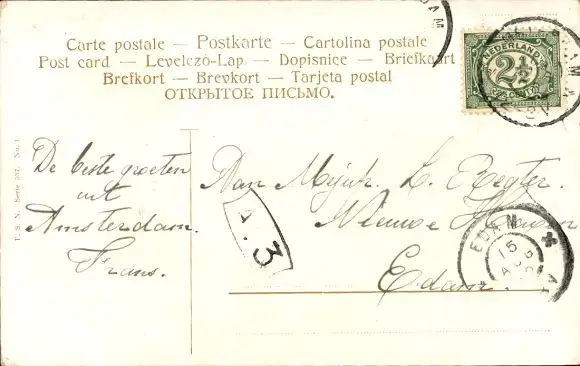 Carte postale — Postkarte — Cartolina postale
Post card — Levelező-Lap. — Dopisnice — Briefkaart
Brefkort — Brevkort — Tarjeta postal
ОТКРЫТОЕ ПИСЬМО.
NEDERLAND
2½
CENT
DAM
AM
T. S. N. Serie 387. No. 1
De beste groeten
uit
Amsterdam.
Frans.
A.3
Aan Mejuk. L. Regter.
Nieuwe Haven
Edam.
EDAM
15